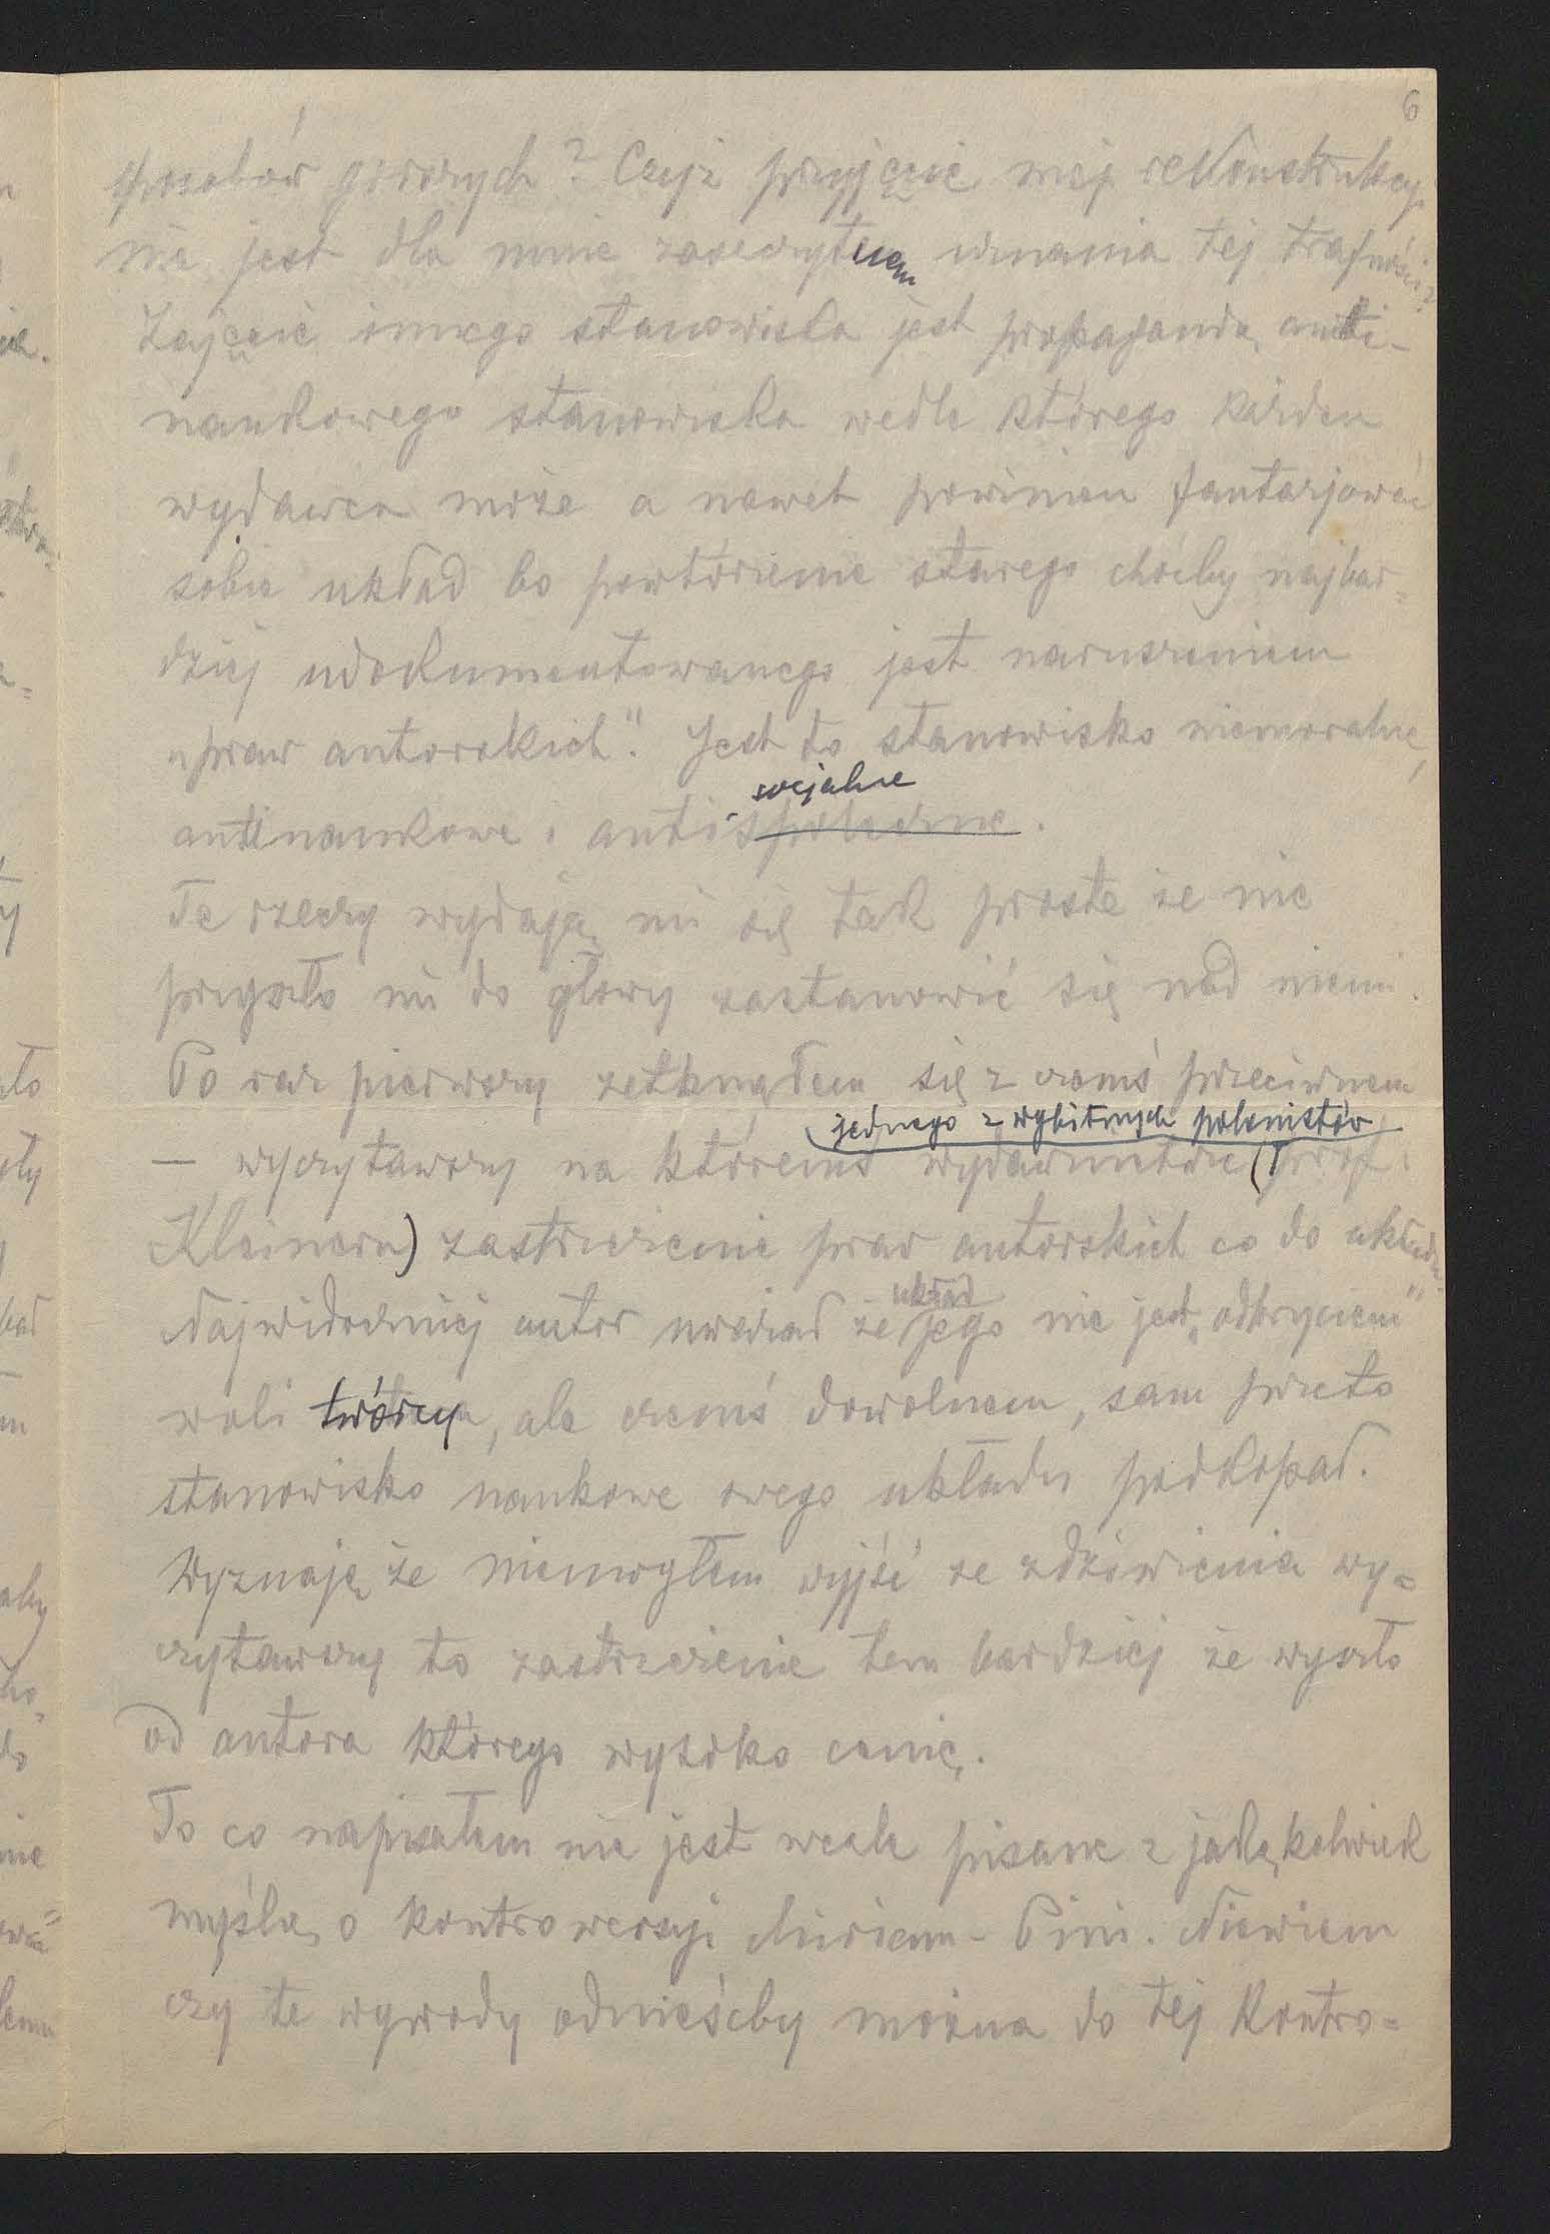 6
sposobów gorszych? Czyż przyjęcie mej rekonstrukcyi
nie jest dla mnie zaszczytnem uznania tej trafności?
Zajęcie innego stanowiska jest propagandą anti-
naukowego stanowiska wedle którego każden
wydawca może a nawet powinien fantazjować
sobie układ bo powtórzenie starego choćby najbar=
dziej udokumentowanego jest naruszeniem
„praw autorskich". Jest to stanowisko niemoralne,
socjalne
antinaukowe i antispołeczne.
Te rzeczy wydają mi się tak proste że nie
przyszło mi do głowy zastanowić się nad niemi.
Po raz pierwszy zetknąłem się z czemś przeciwnem
jednego z wybitnych polonistów
— wyczytawszy na któremś wydawnictwie (prof.
Kleinera) zastrzeżenie praw autorskich co do układu.
układ
Najwidoczniej autor uważał że jego nie jest „odkryciem"
woli twórcy, ale czemś dowolnem, sam przeto
stanowisko naukowe owego układu podkopał.
Wyznaję że niemogłem wyjść ze zdziwienia wy=
czytawszy to zastrzeżenie tem bardziej że wyszło
od autora którego wysoko cenię.
To co napisałem nie jest wcale pisane z jakąkolwiek
myślą o kontrowersyi Miriam - Pini. Niewiem
czy te wywody odnieśćby można do tej kontro=